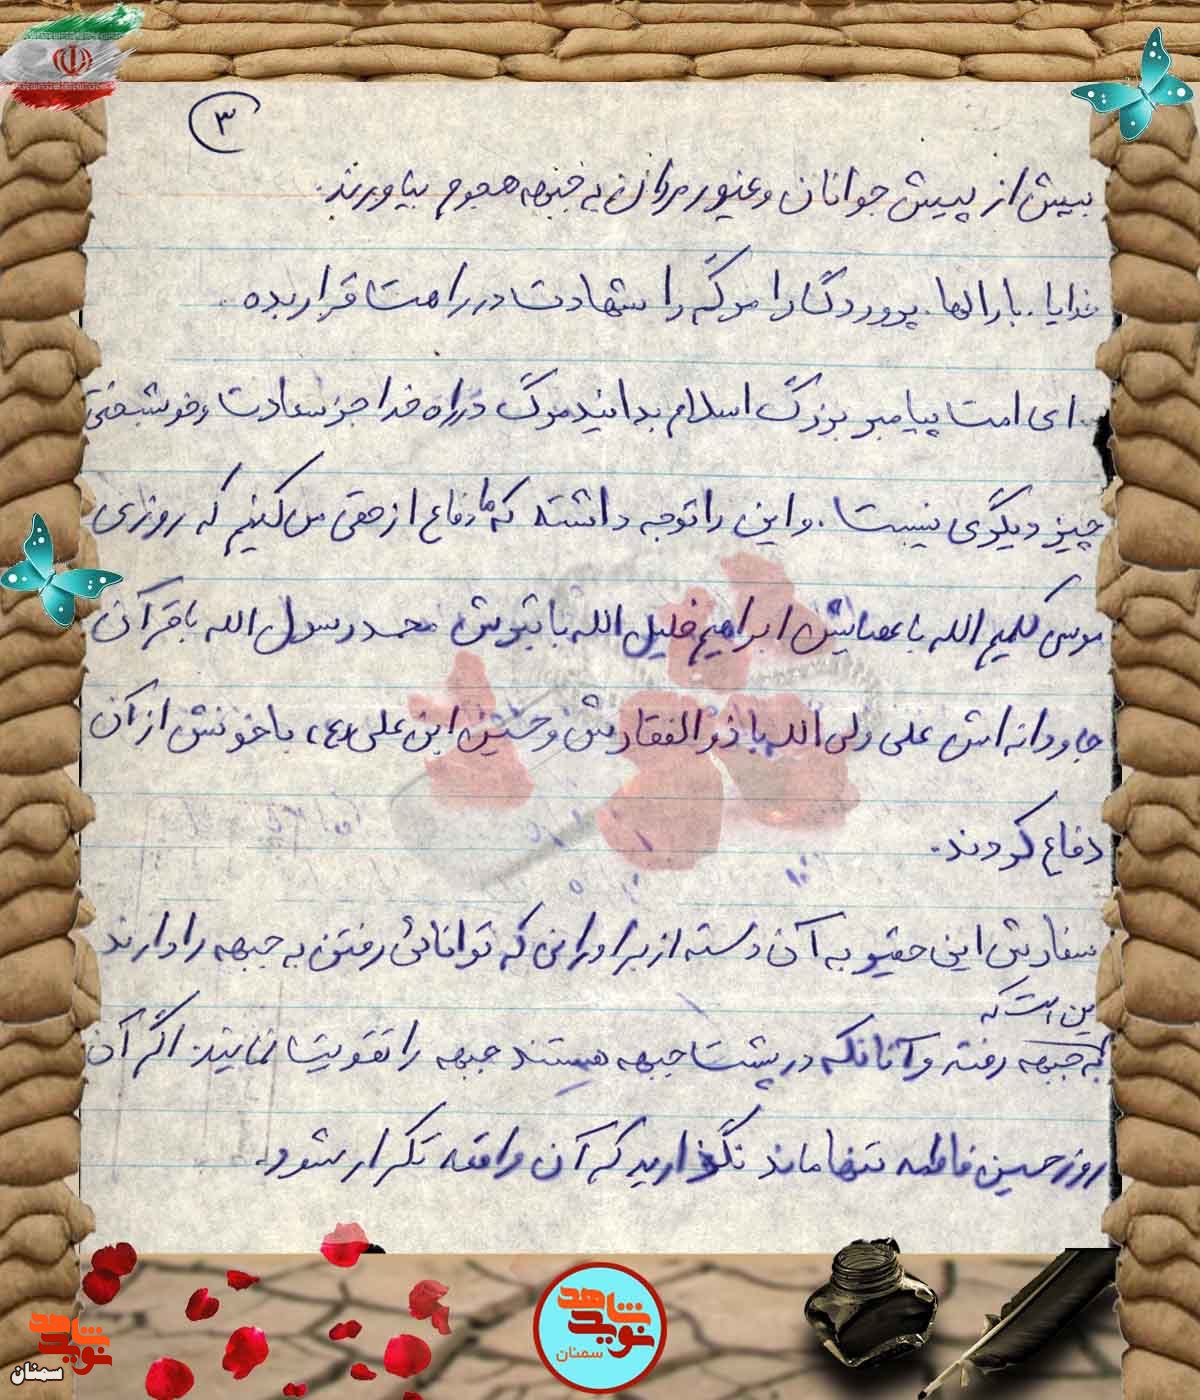 ۳
بیش از پیش جوانان و غیور مردان به جبهه هجوم بیاورند.
خدایا. بارالها. پروردگارا مرگ را شهادت در راهت قرار بده.
ای امت پیامبر بزرگ اسلام بدانید مرگ در راه خدا جز سعادت و خوشبختی
چیز دیگری نیست. و این را توجه داشته که ما دفاع از حقی می کنیم که روزی
موسی کلیم الله با عصایش ابراهیم خلیل الله با تبرش محمد رسول الله با قرآن
جاودانه اش علی ولی الله با ذوالفقارش و حسین ابن علی (ع) با خونش از آن
دفاع کردند.
سفارش این حقیر به آن دسته از برادرانی که توانائی رفتن به جبهه را دارند
این است که
به جبهه رفته و آنانکه در پشت جبهه هستند جبهه را تقویت نمایند. اگر آن
روز حسین فاطمه تنها ماند نگذارید که آن واقعه تکرار شود.
نوید شاهد
سمنان
نوید شاهد
سمنان